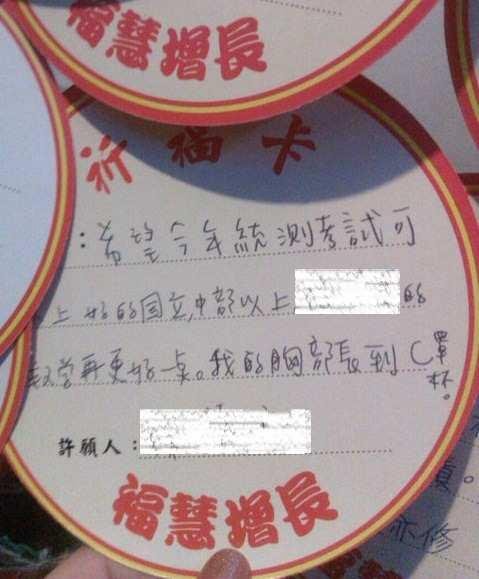 福慧增長
祈福卡
：希望今年統測考試可
上好的国立,中部以上，的
教学再更好一点。我的胸部長到C罩
杯。
許願人：
福慧增長
亦修